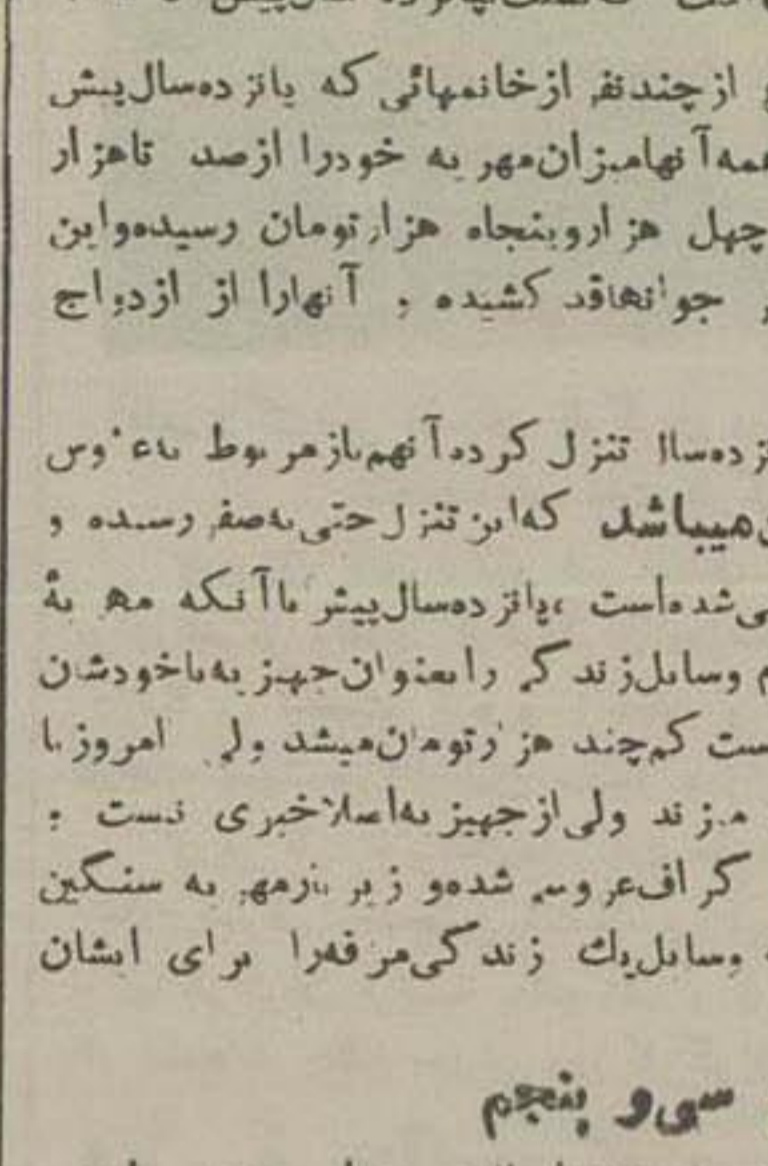 از چند نفر از خانمهائی که پانزده سال پیش
همه آنها میزان مهریه خودرا از صد تا هزار
چهل هزار و پنجاه هزار تومان رسیده و این
جوانها قد کشیده و آنهارا از ازدواج
ده سال تنزل کرده آنهم باز مربوط بعروس
میباشد که این تنزل حتی به صفر رسیده و
شده است ، پانزده سال پیش با آنکه مهریهٔ
وسایل زندگی را بعنوان جهیزیه با خودشان
دست کم چند هزار تومان میشد ولی امروز با
میزند ولی از جهیزیه اصلا خبری نیست و
گزاف عروس شده و زیر بار مهریه سنگین
وسایل یک زندگی مرفه را برای ایشان
سی و پنجم